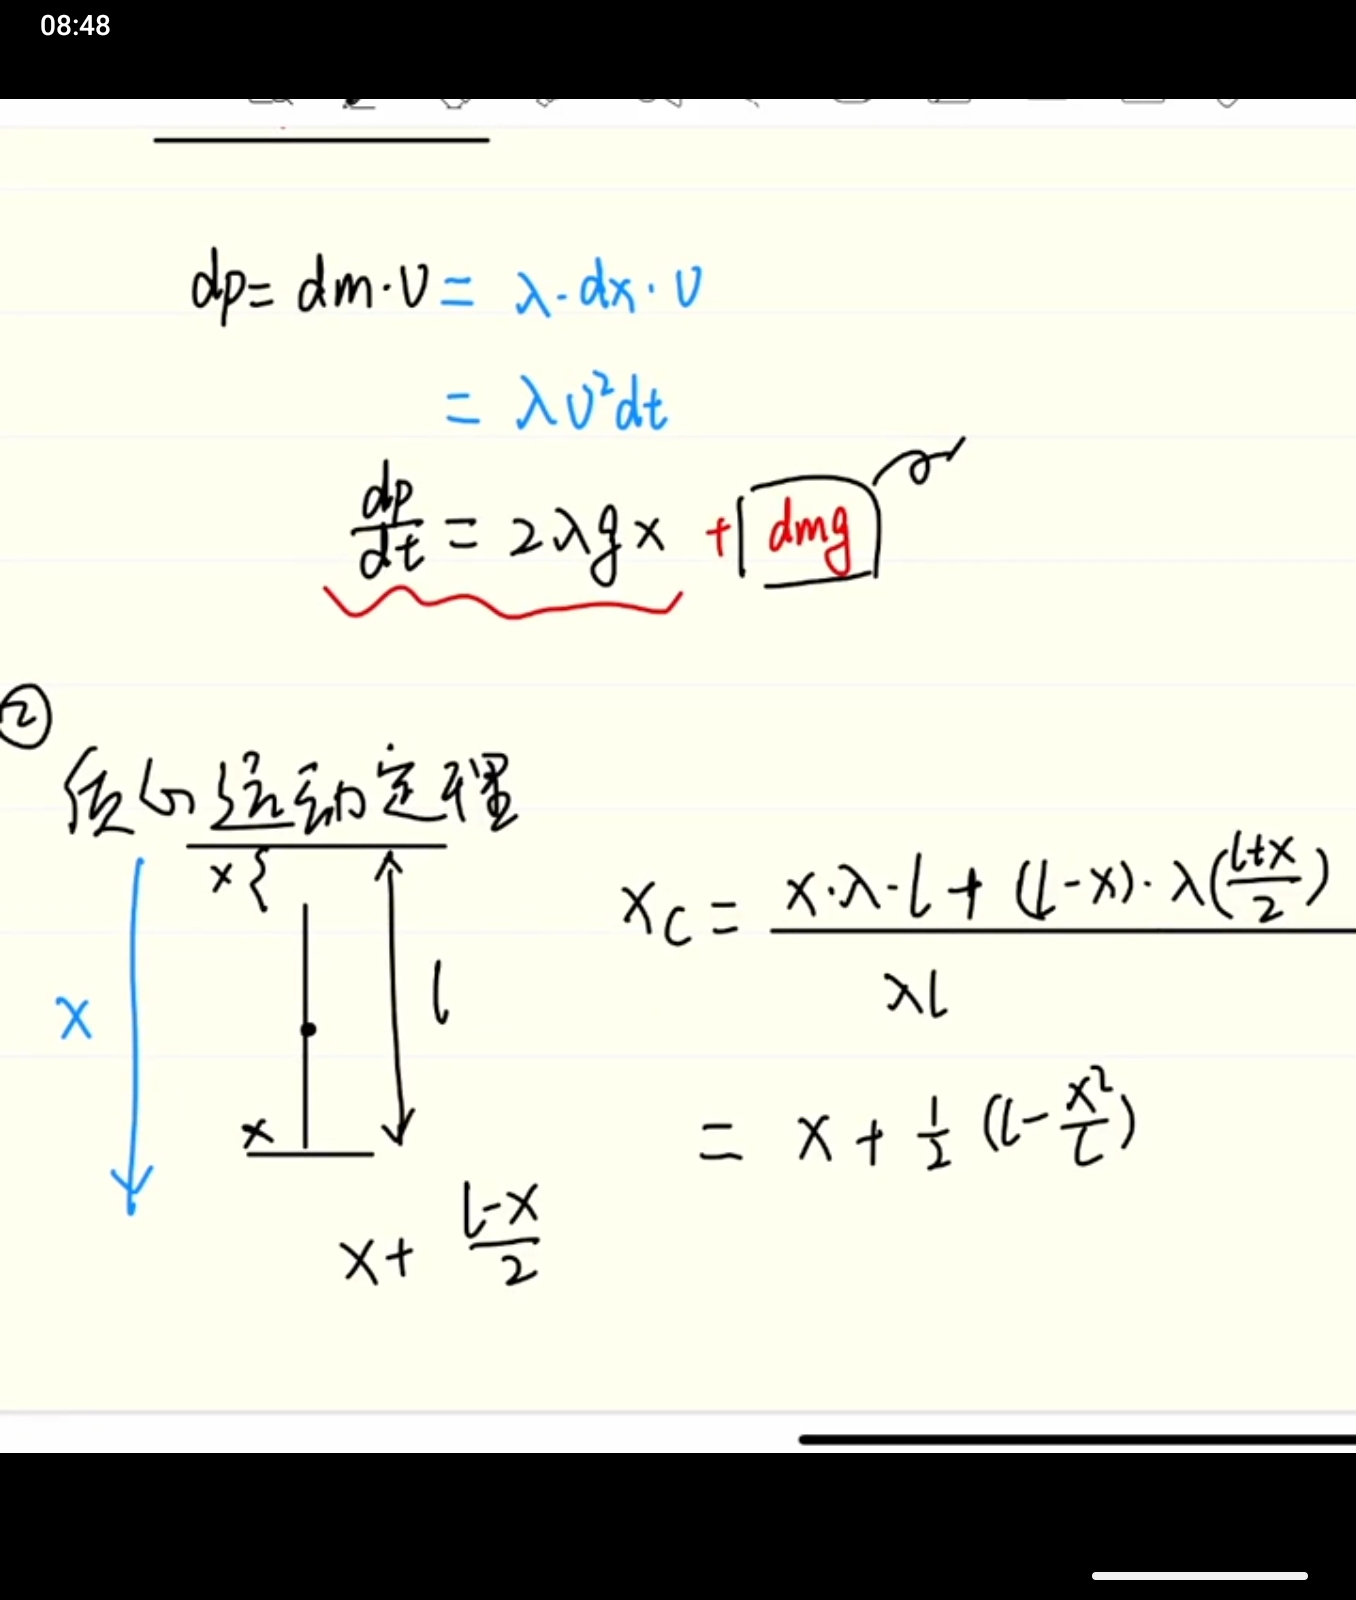 08:48
dp = dm · υ = λ · dx · υ
= λυ²dt
dp/dt = 2λgx + dmg
②
质心运动定理
x {
l
x
x
x + (l-x)/2
x_c = (x·λ·l + (l-x)·λ((l+x)/2))/(λl)
= x + 1/2 (l - x²/l)